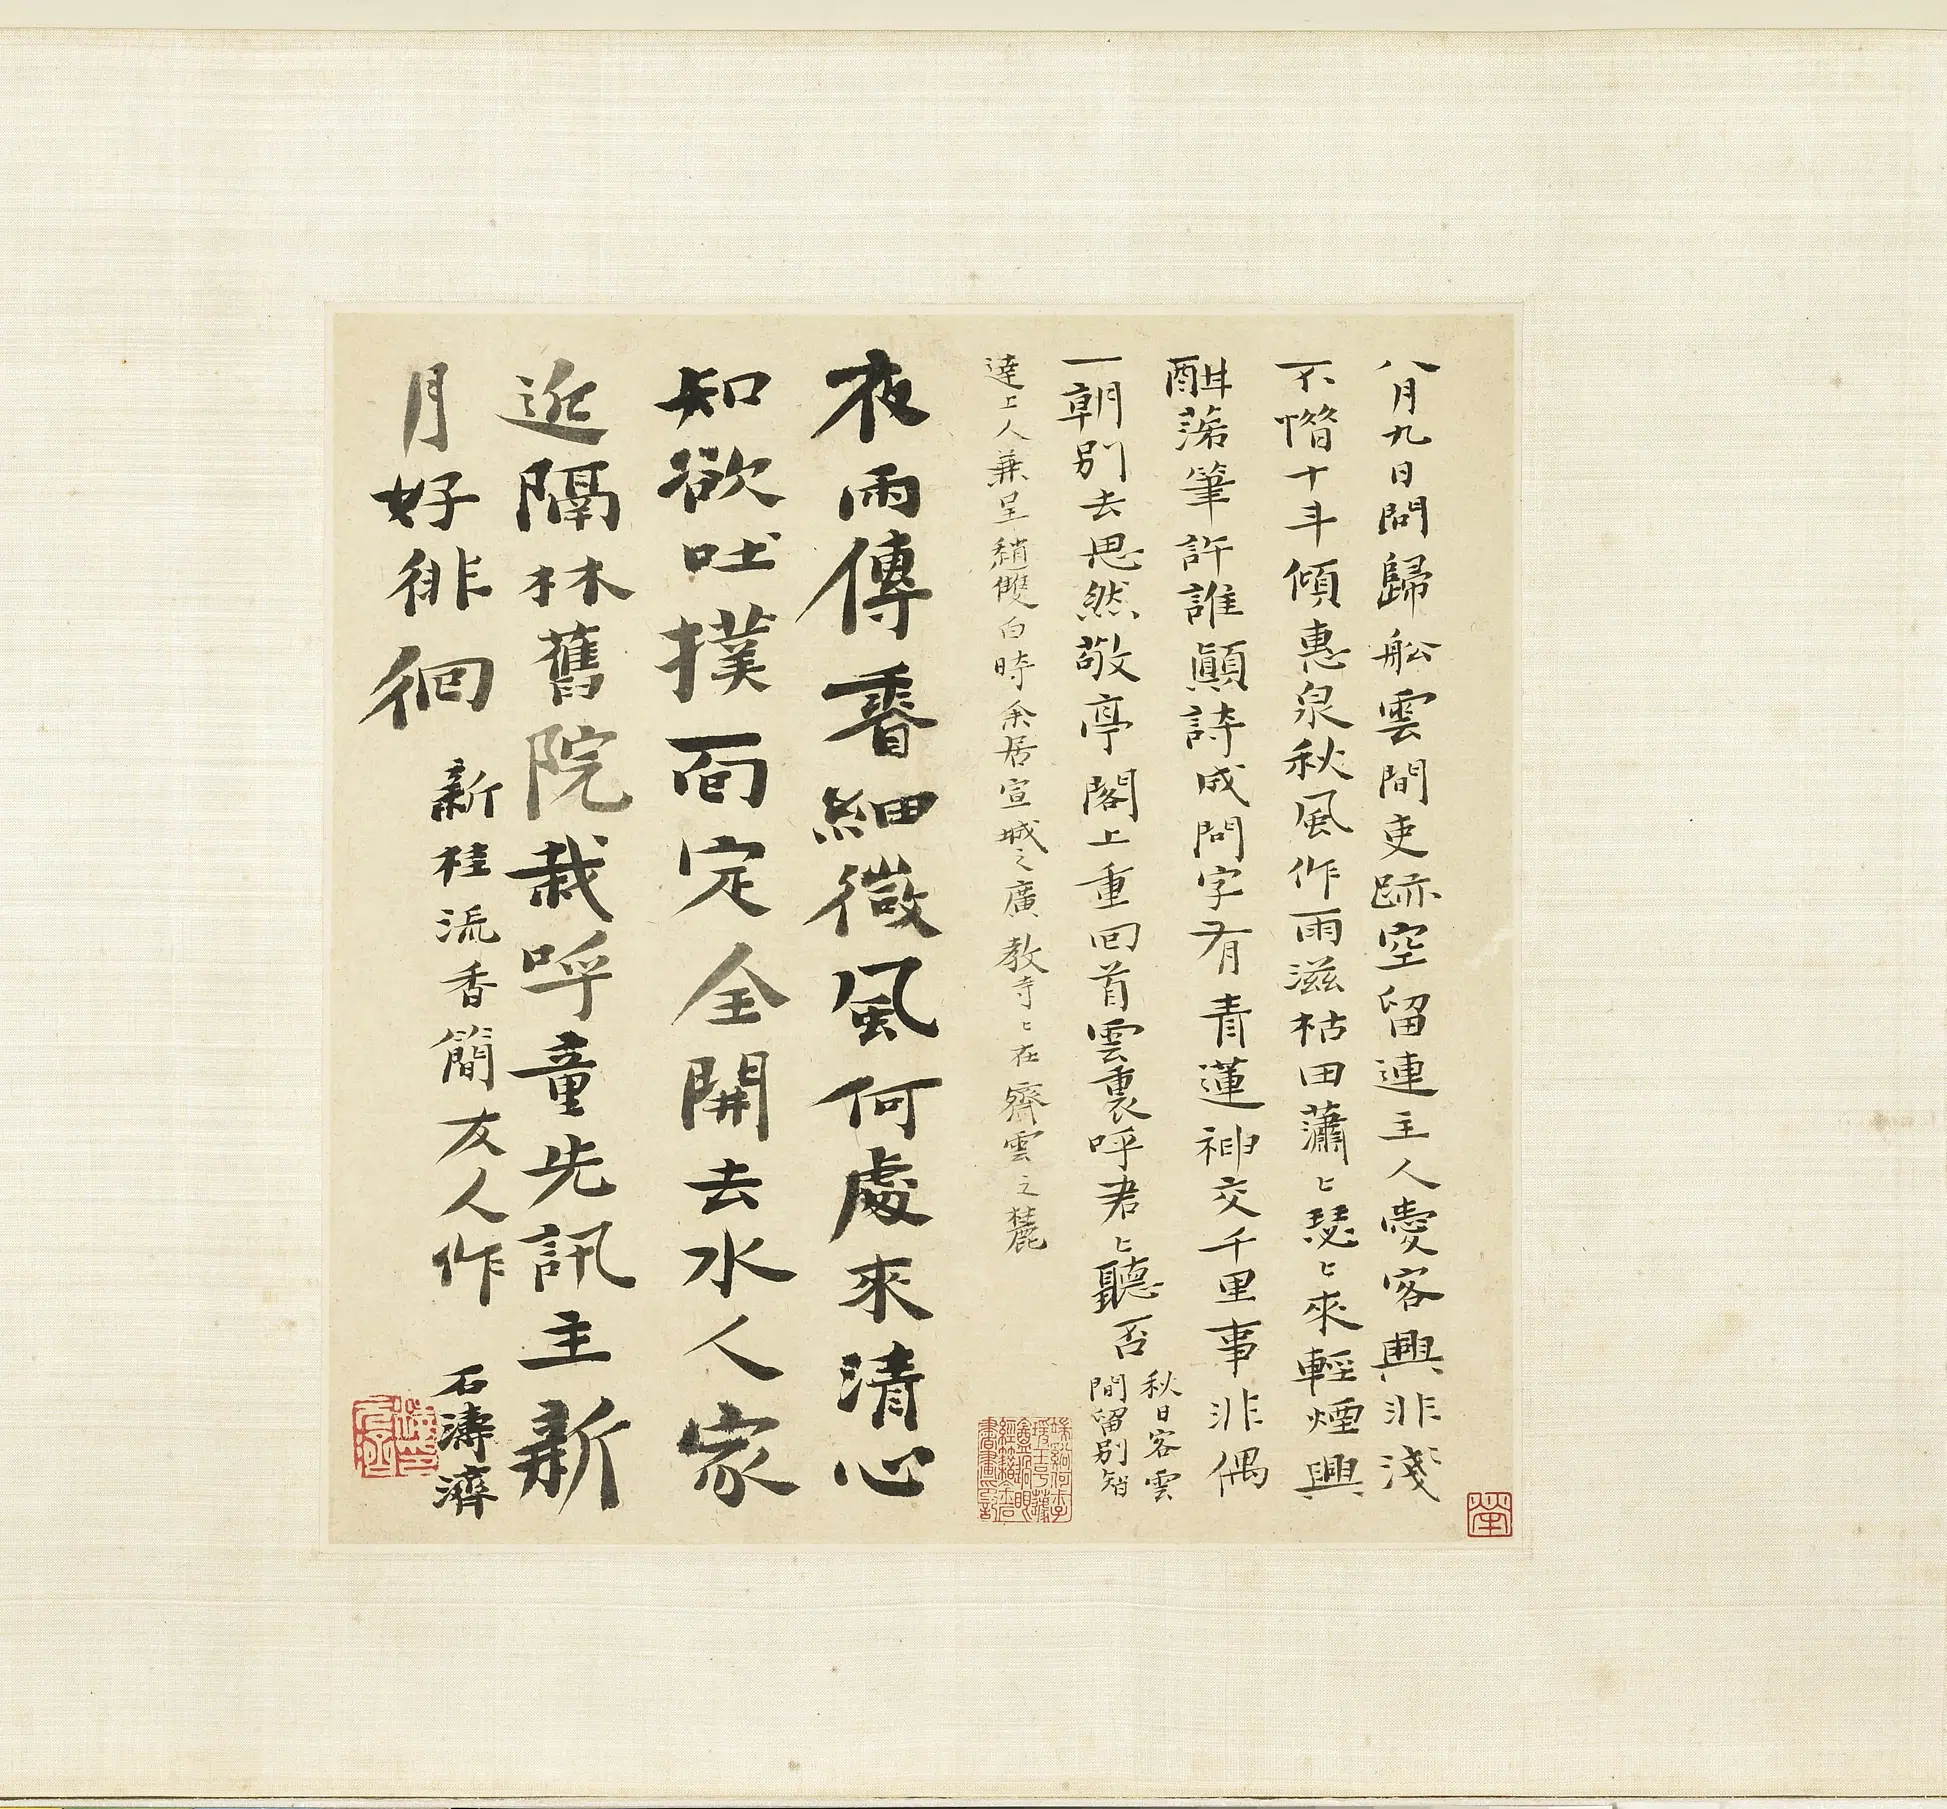 八月九日問歸船雲間吏跡空留連主人愛客興非淺
不惜十斗傾惠泉秋風作雨滋枯田蕭〻瑟〻來輕煙興
酣落筆許誰顛詩成問字有青蓮神交千里事非偶
一朝別去思然敬亭閣上重回首雲裏呼君〻聽否
秋日客雲
間留別智
達上人兼呈趙雙白時余居宣城之廣教寺〻在齊雲之麓
夜雨傳香細微風何處來清心
知欲吐撲面定全開去水人家
近隔林舊院栽呼童先訊主新
月好徘徊
新桂流香簡友人作
石濤濟